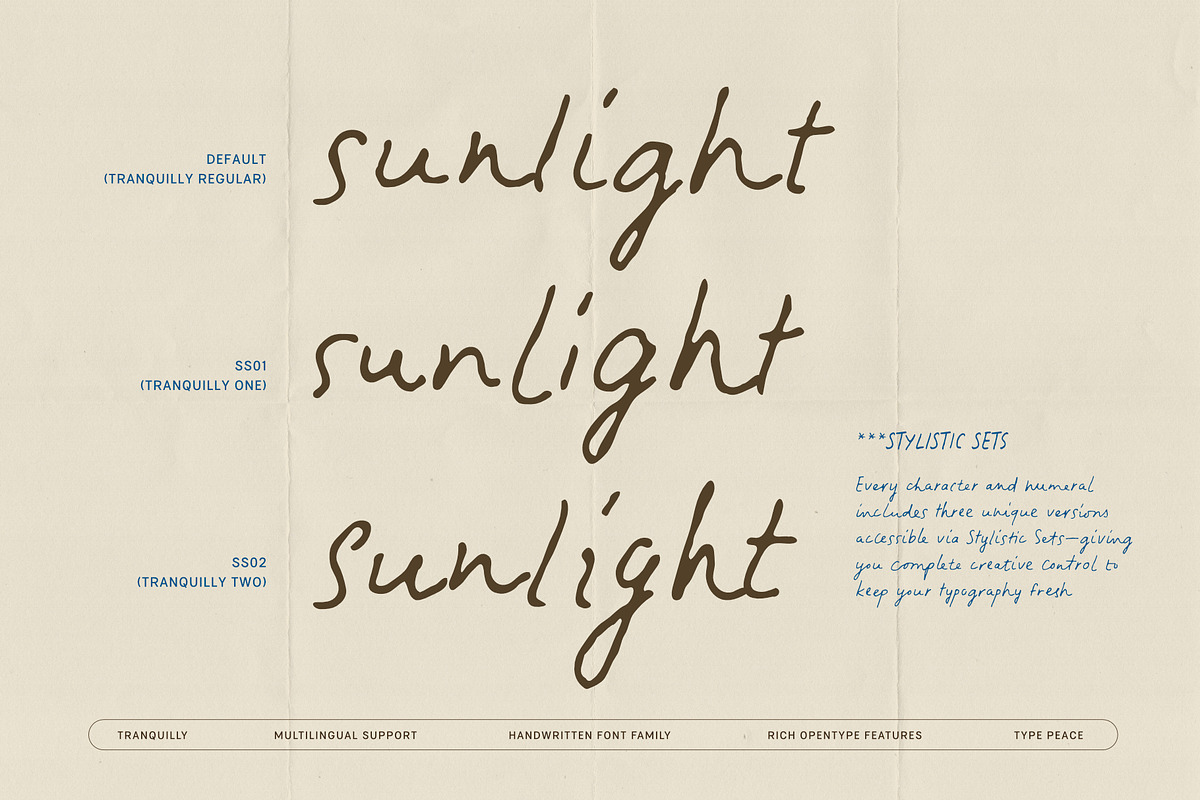 DEFAULT
(TRANQUILLY REGULAR)
sunlight
SS01
(TRANQUILLY ONE)
sunlight
SS02
(TRANQUILLY TWO)
sunlight
***STYLISTIC SETS
Every character and numeral
includes three unique versions
accessible via Stylistic Sets—giving
you complete creative control to
keep your typography fresh
TRANQUILLY MULTILINGUAL SUPPORT HANDWRITTEN FONT FAMILY RICH OPENTYPE FEATURES TYPE PEACE